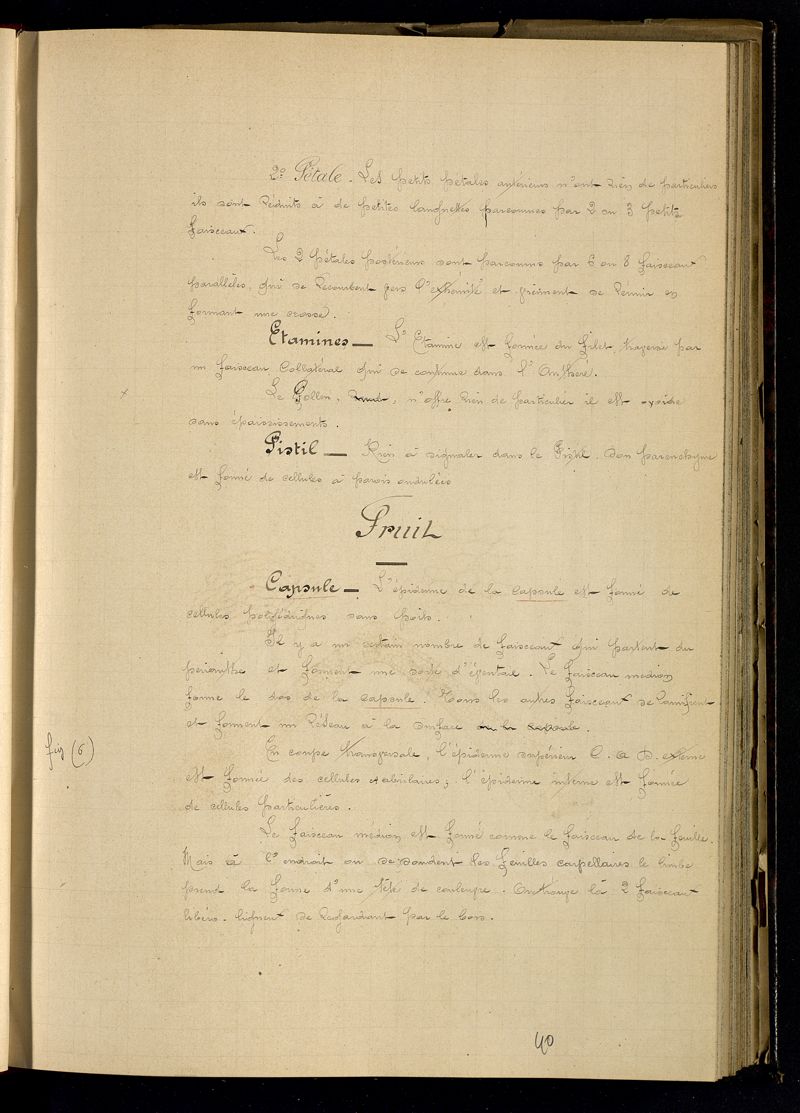 2º Pétale. Les petits pétales antérieurs n'ont rien de particuliers
ils sont réduits à de petites languettes parcourues par 2 ou 3 petits
faisceaux.
Les 2 pétales postérieurs sont parcourus par 6 ou 8 faisceaux
parallèles, qui se recourbent vers l'extrémité et viennent se réunir en
formant une crosse.
Etamines — L'Etamine est formée du filet, traversé par
un faisceau collatéral qui se continue dans l'Anthère.
Le Pollen, n'offre rien de particulier il est ovoïde
sans épaississements.
Pistil — Rien à signaler dans le Pistil. Son parenchyme
est formé de cellules à parois ondulées
Fruit
Capsule — L'épiderme de la capsule est formé de
cellules polyédriques sans poils.
Il y a un certain nombre de faisceaux qui partent du
périanthe et forment une sorte d'éventail. Le faisceau médian
forme le dos de la capsule. Tous les autres faisceaux se ramifient
et forment un réseau à la surface de la capsule.
fig (6)
En coupe transversale, l'épiderme supérieur C. a D. externe
est formée des cellules tabulaires; l'épiderme interne est formée
de cellules particulières.
Le faisceau médian est formé comme le faisceau de la feuille.
Mais à l'endroit ou se soudent les feuilles carpellaires le limbe
prend la forme d'une tête de couleuvre. On trouve là 2 faisceaux
libéro-ligneux se regardant par le bois.
40